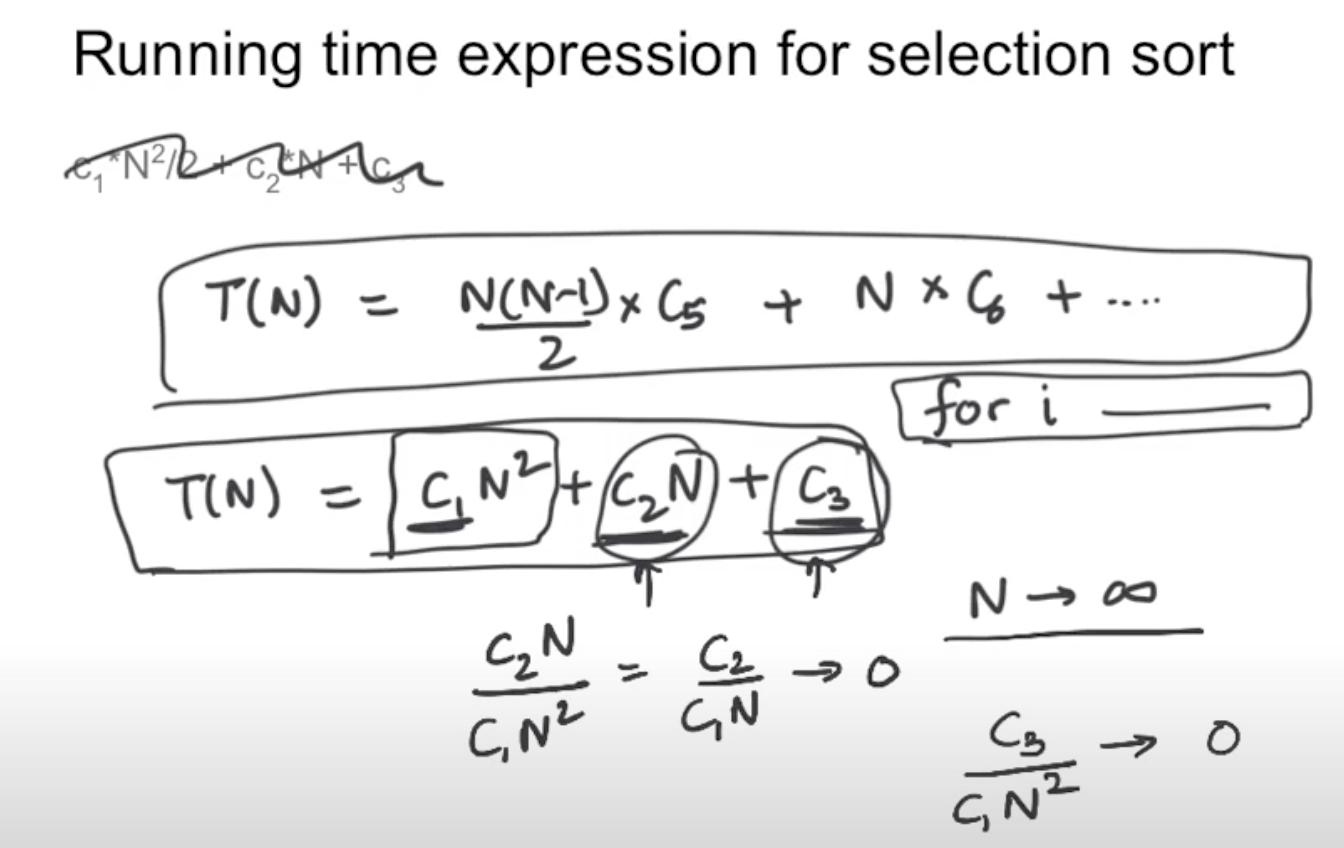 Running time expression for selection sort
c₁*N²/2 + c₂*N + c₃
T(N) = N(N-1)/2 × C₅ + N × C₆ + ....
for i
T(N) = C₁N² + C₂N + C₃
N → ∞
C₂N/C₁N² = C₂/C₁N → 0
C₃/C₁N² → 0